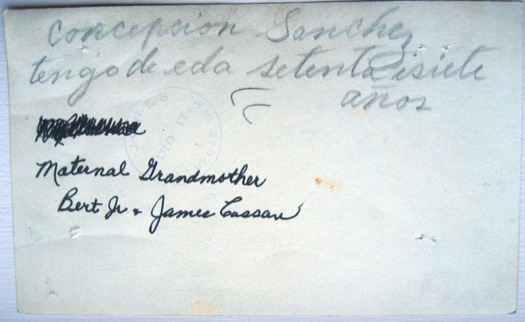 Concepcion Sanchez
tengo de eda setentaisiete
años
Maternal Grandmother
Bert Jr + James Cassan